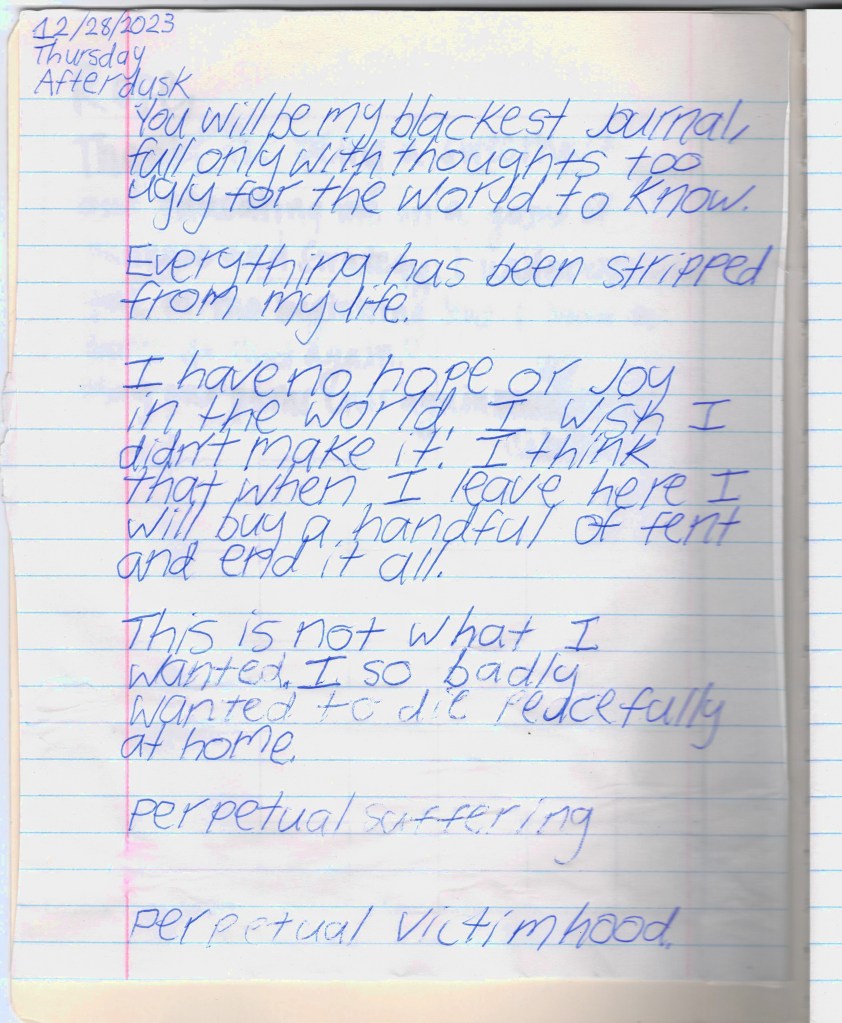 12/28/2023
Thursday
After dusk
You will be my blackest journal,
full only with thoughts too
ugly for the world to know.
Everything has been stripped
from my life.
I have no hope or joy
in the world. I wish I
didn't make it. I think
that when I leave here I
will buy a handful of fent
and end it all.
This is not what I
wanted. I so badly
wanted to die peacefully
at home.
perpetual suffering
perpetual victimhood.